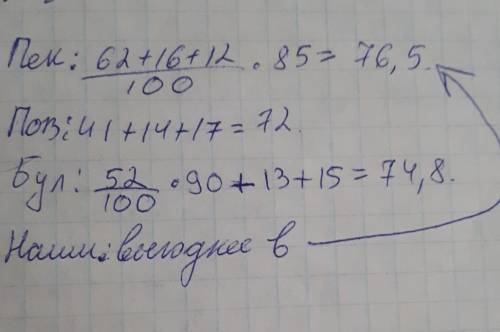 Пек: 62+16+12/100 · 85 = 76,5.
Поз: 41+14+17=72.
Бул: 52/100 · 90 + 13+15=74,8.
Наши: выгоднее в